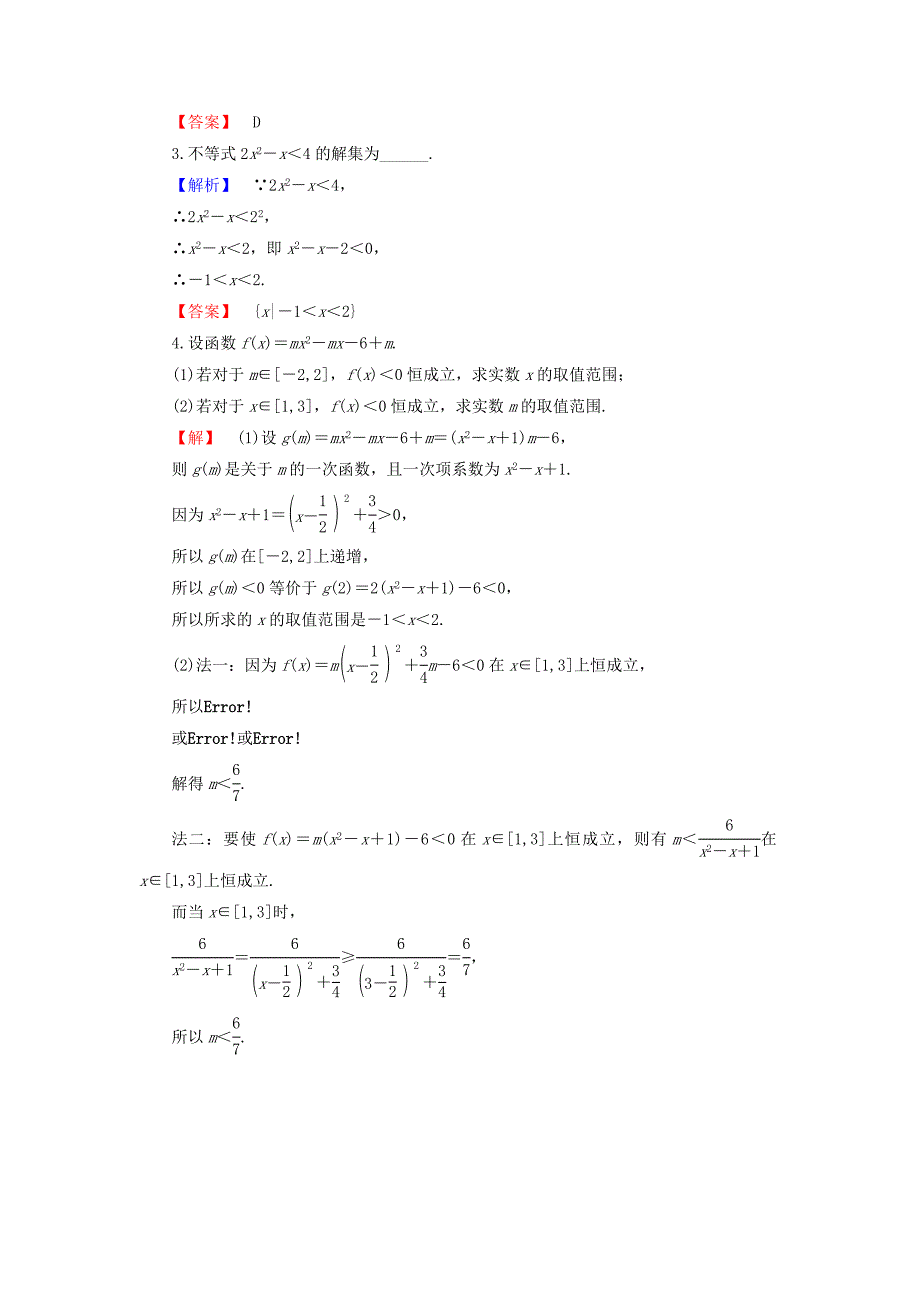 【答案】 D
3.不等式 2x²－x＜4 的解集为______.
【解析】 ∵2x²－x＜4，
∴2x²－x＜2²，
∴x²－x＜2，即 x²－x－2＜0，
∴－1＜x＜2.
【答案】 {x|－1＜x＜2}
4.设函数 f(x)＝mx²－mx－6＋m.
(1)若对于 m∈[－2,2]，f(x)＜0 恒成立，求实数 x 的取值范围；
(2)若对于 x∈[1,3]，f(x)＜0 恒成立，求实数 m 的取值范围.
【解】 (1)设 g(m)＝mx²－mx－6＋m＝(x²－x＋1)m－6，
则 g(m)是关于 m 的一次函数，且一次项系数为 x²－x＋1.
因为 x²－x＋1＝(x－1/2)²＋3/4＞0，
所以 g(m)在[－2,2]上递增，
所以 g(m)＜0 等价于 g(2)＝2(x²－x＋1)－6＜0，
所以所求的 x 的取值范围是－1＜x＜2.
(2)法一：因为 f(x)＝m(x－1/2)²＋3/4m－6＜0 在 x∈[1,3]上恒成立，
所以Error!
或Error!或Error!
解得 m＜6/7.
法二：要使 f(x)＝m(x²－x＋1)－6＜0 在 x∈[1,3]上恒成立，则有 m＜6/(x²－x＋1)在
x∈[1,3]上恒成立.
而当 x∈[1,3]时，
6/(x²－x＋1)＝6/((x－1/2)²＋3/4)≥6/((3－1/2)²＋3/4)＝6/7，
所以 m＜6/7.